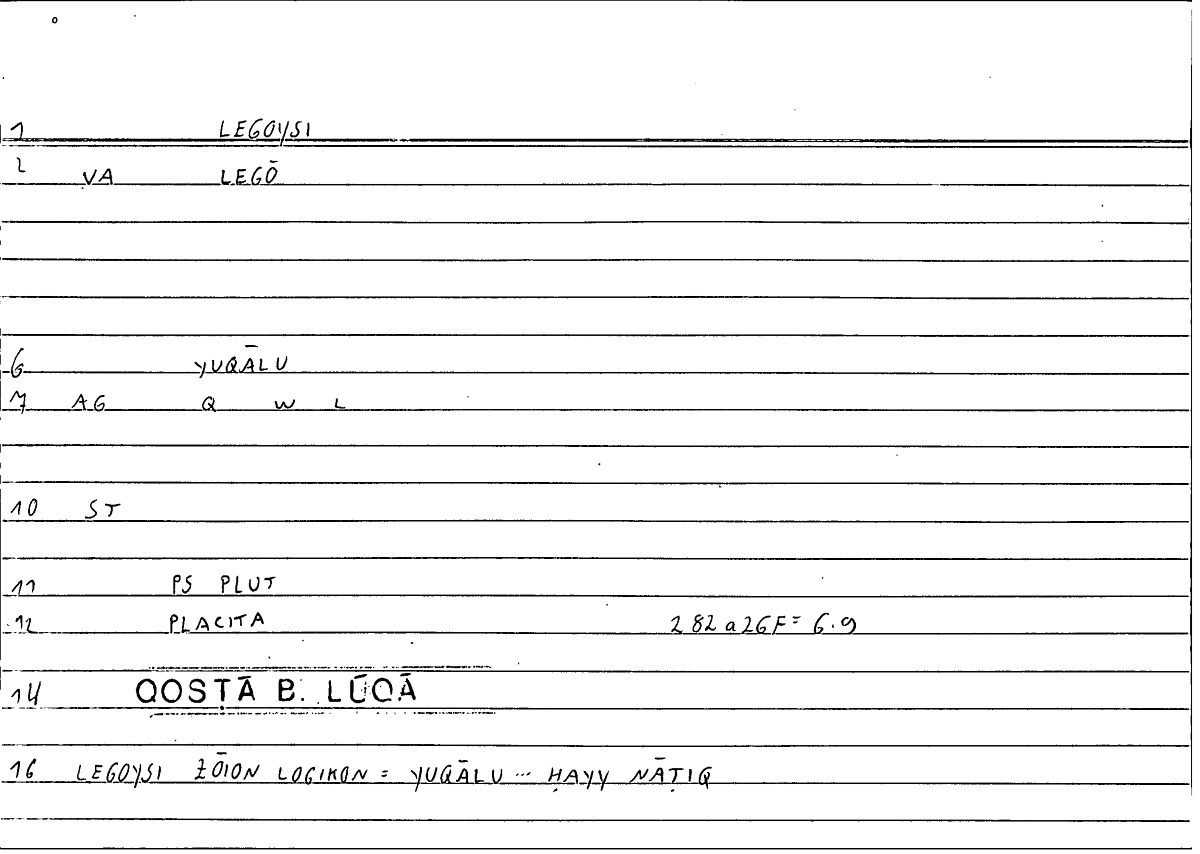 1 LEGOYSI
2 VA LEGŌ
6 YUQĀLU
7 AG Q W L
10 ST
11 PS PLUT
12 PLACITA 282a26F= 6.9
14 QOSṬĀ B. LŪQĀ
16 LEGOYSI ZŌION LOGIKON = YUQĀLU ... ḤAYY NĀṬIQ